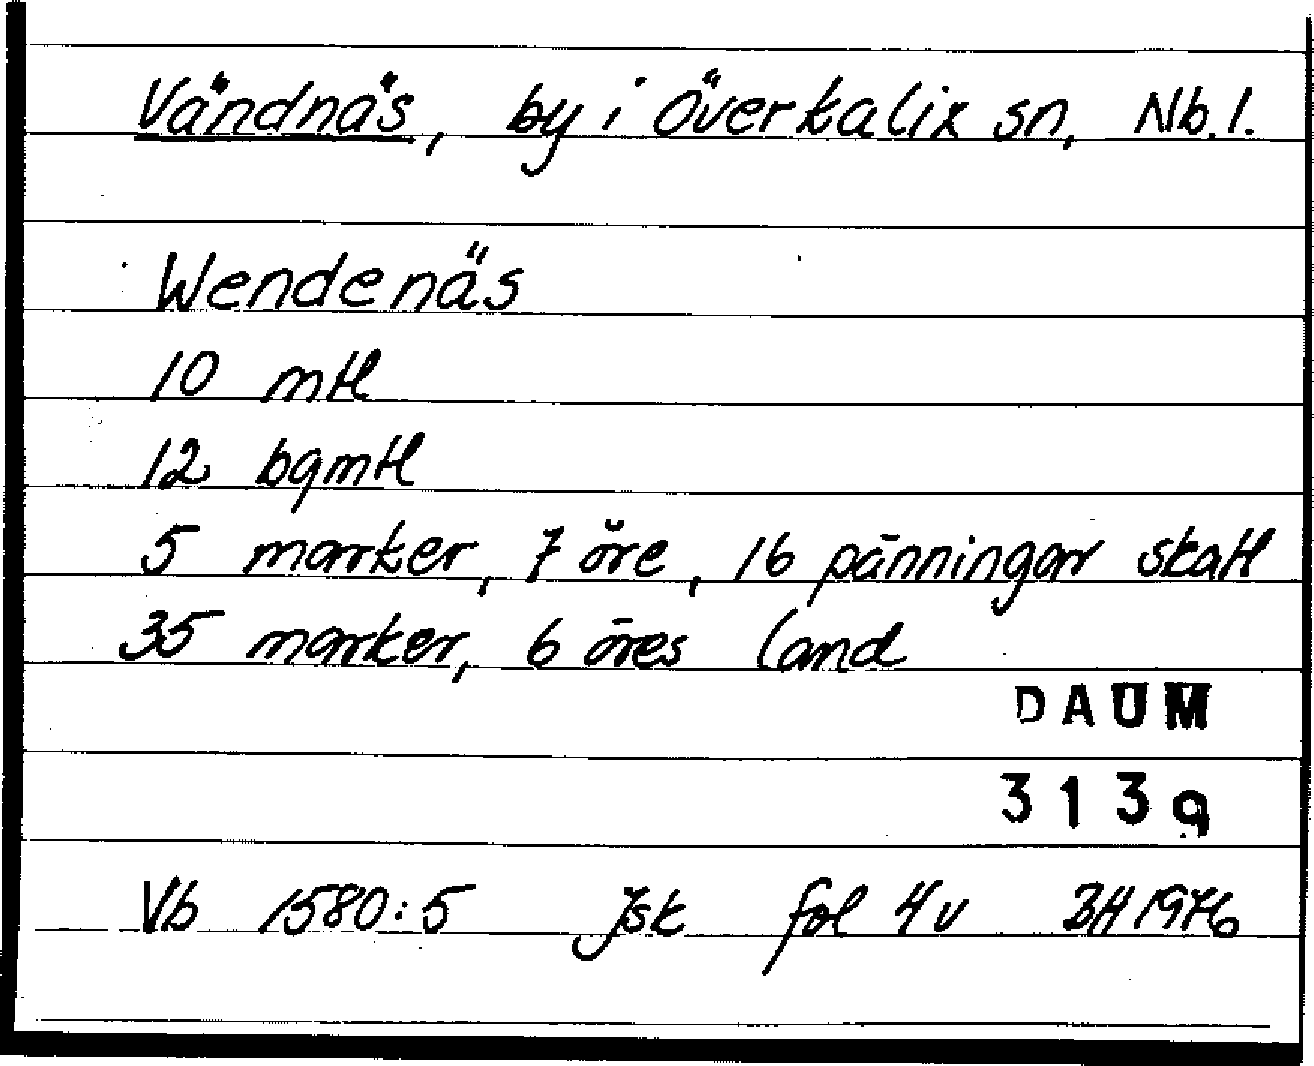 Vändnäs, by i Överkalix sn, Nb. l.
Wendenäs
10 mtl
12 bgmtl
5 marker, 7 öre, 16 pänningar skatt
35 marker, 6 öres land
DAUM
3139
Vb 1580:5 Jsk fol 4v BH 1976